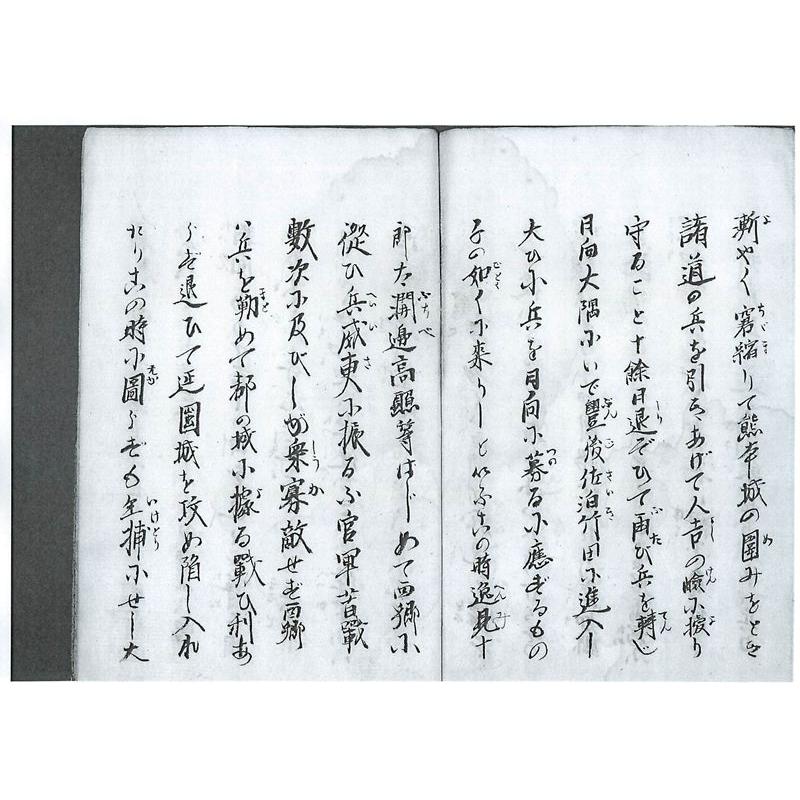 漸やく窘縮りて熊本城の圍みをとき
諸道の兵を引あげて人吉の險に據り
守ること十餘日退ぞひて再び兵を轉じ
日向大隅にいで豐後佐泊竹田に進入し
大ひに兵を日向に募るに應ずるもの
子の如くに来りしと云ふ此の時逸見十
郎太淵邉高照等はじめて西郷に
從ひ兵威更に振るふ官軍苦戰
數次に及びしが衆寡敵せず西郷
兵を勒めて都の城に據る戰ひ利あ
らず退ひて延岡城を攻め陥し入れ
たり此の時に圖らずも生捕にせし大